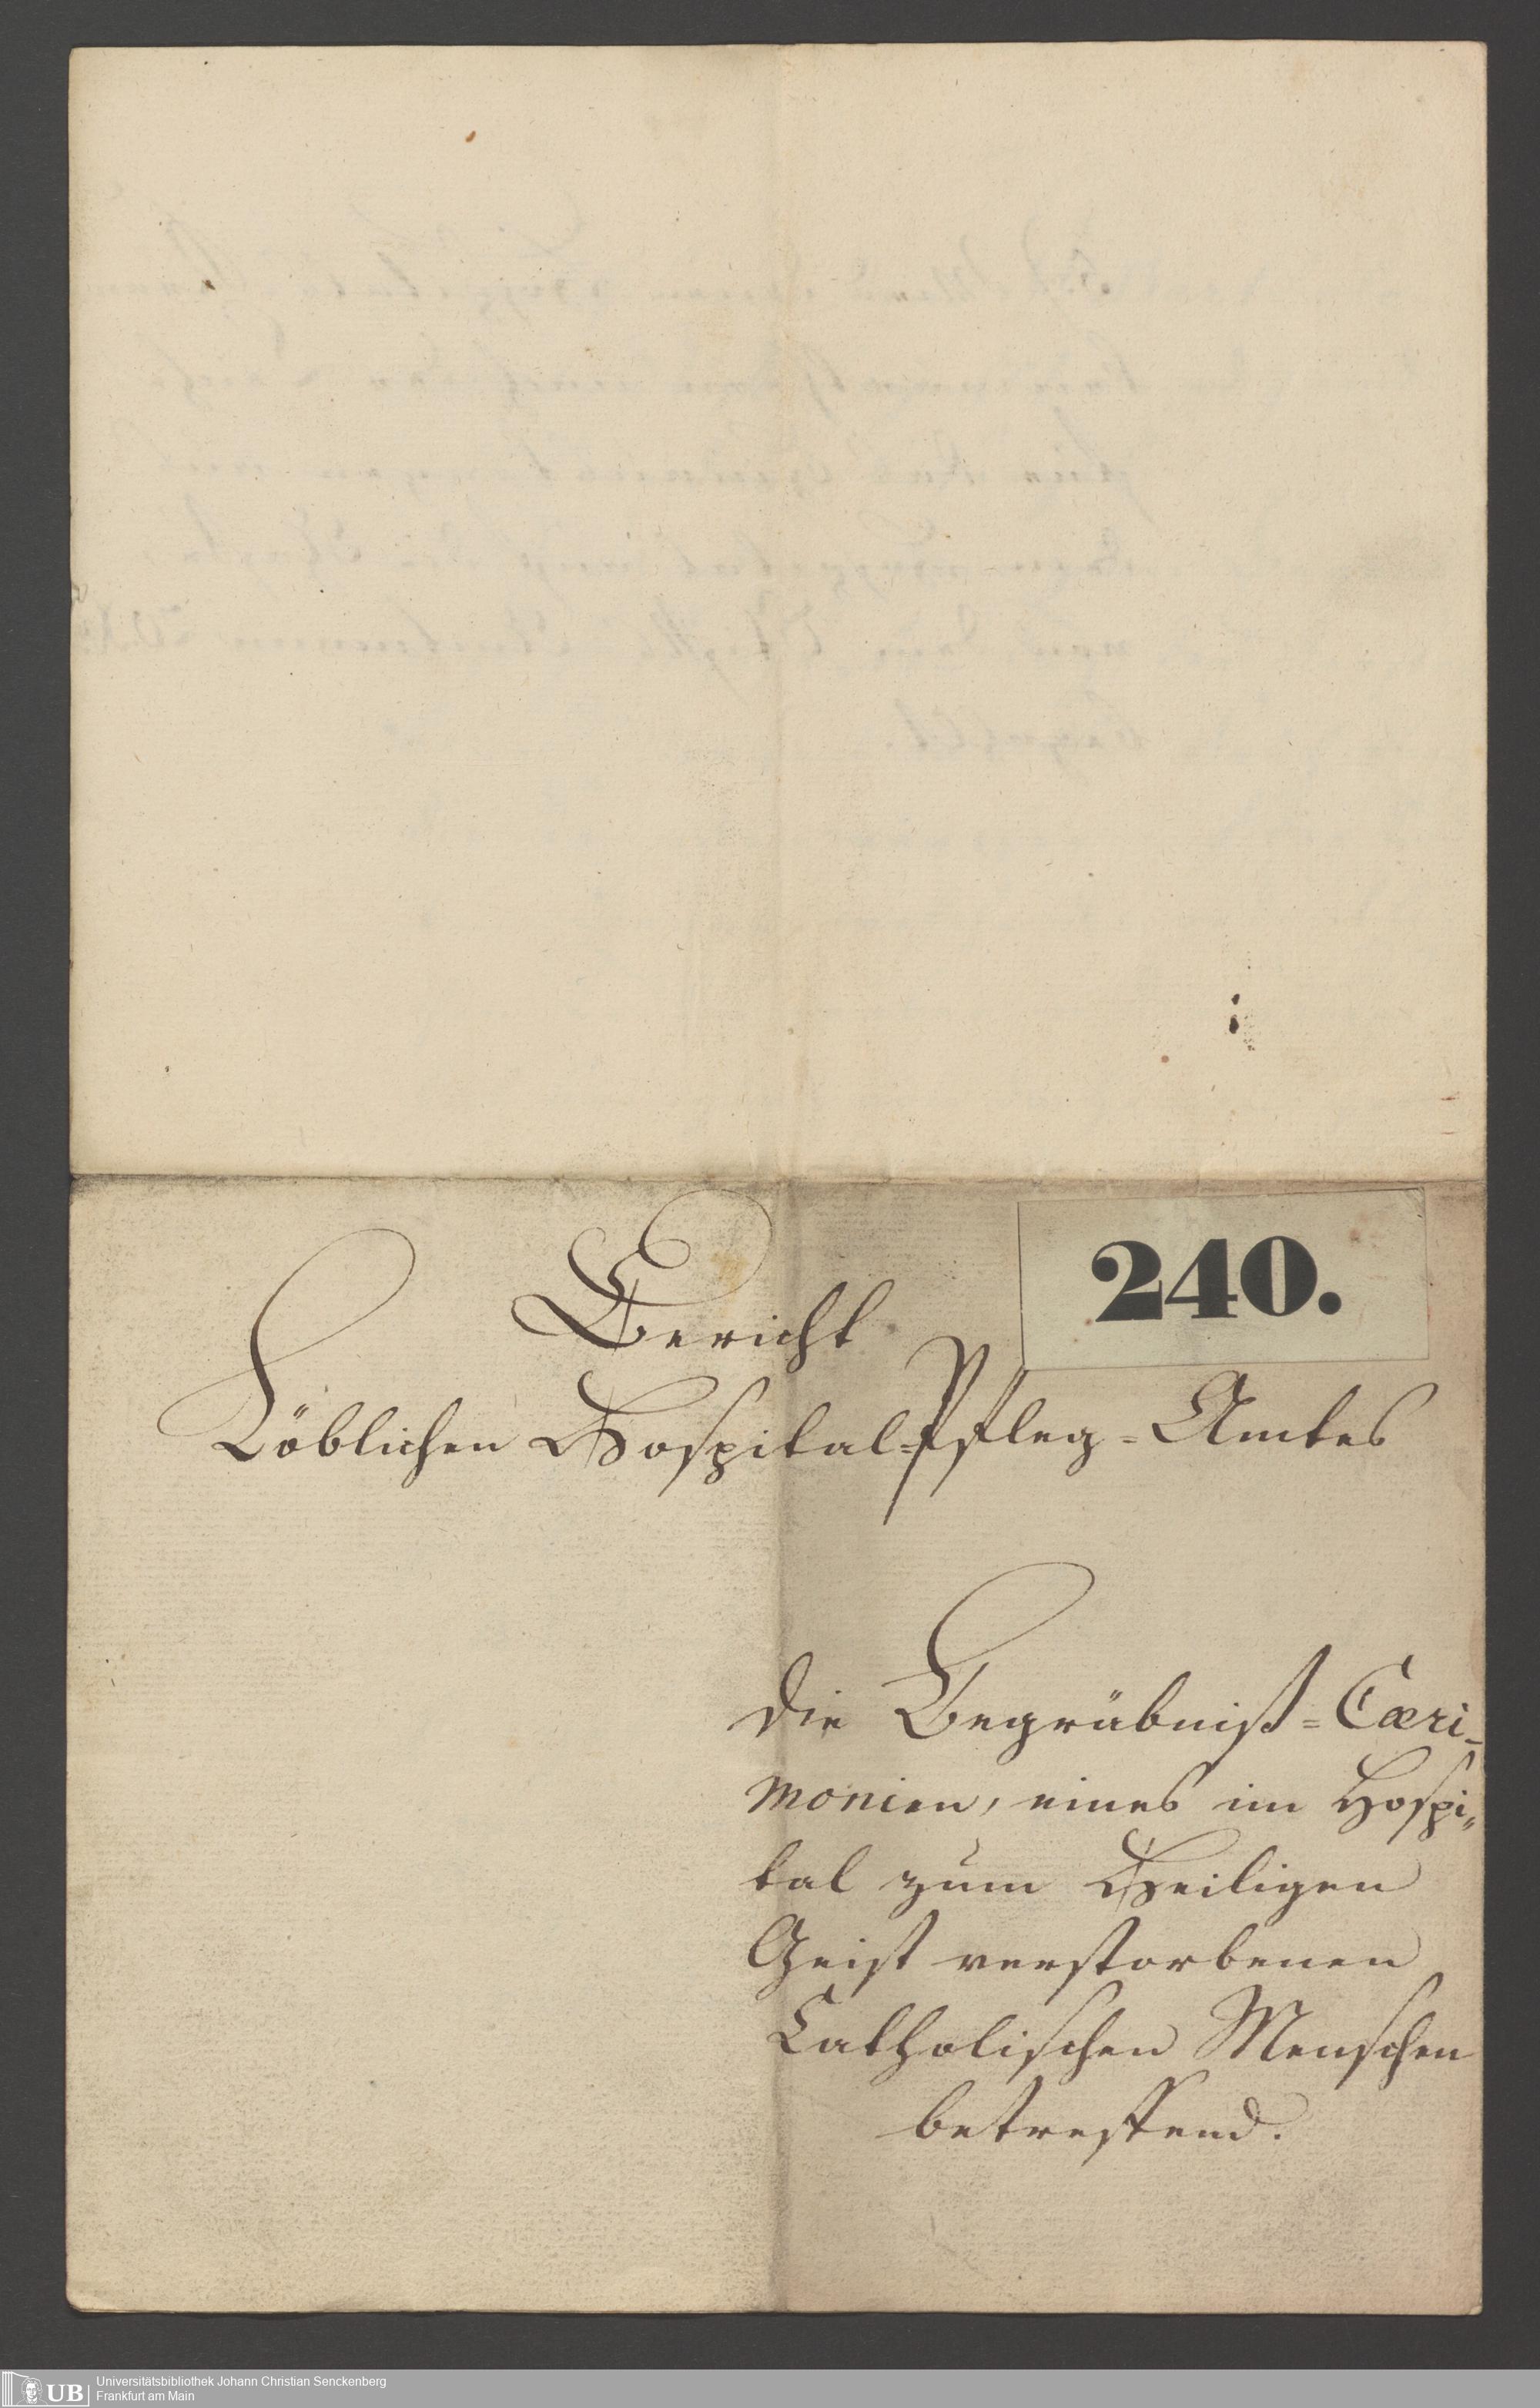 240.
Bericht
Löblichen Hospital=Pfleg=Amtes
die Begräbniß=Cæri-
monien, eines im Hospi„
tal zum Heiligen
Geist verstorbenen
Catholischen Menschen
betreffend.
UB
Universitätsbibliothek Johann Christian Senckenberg
Frankfurt am Main